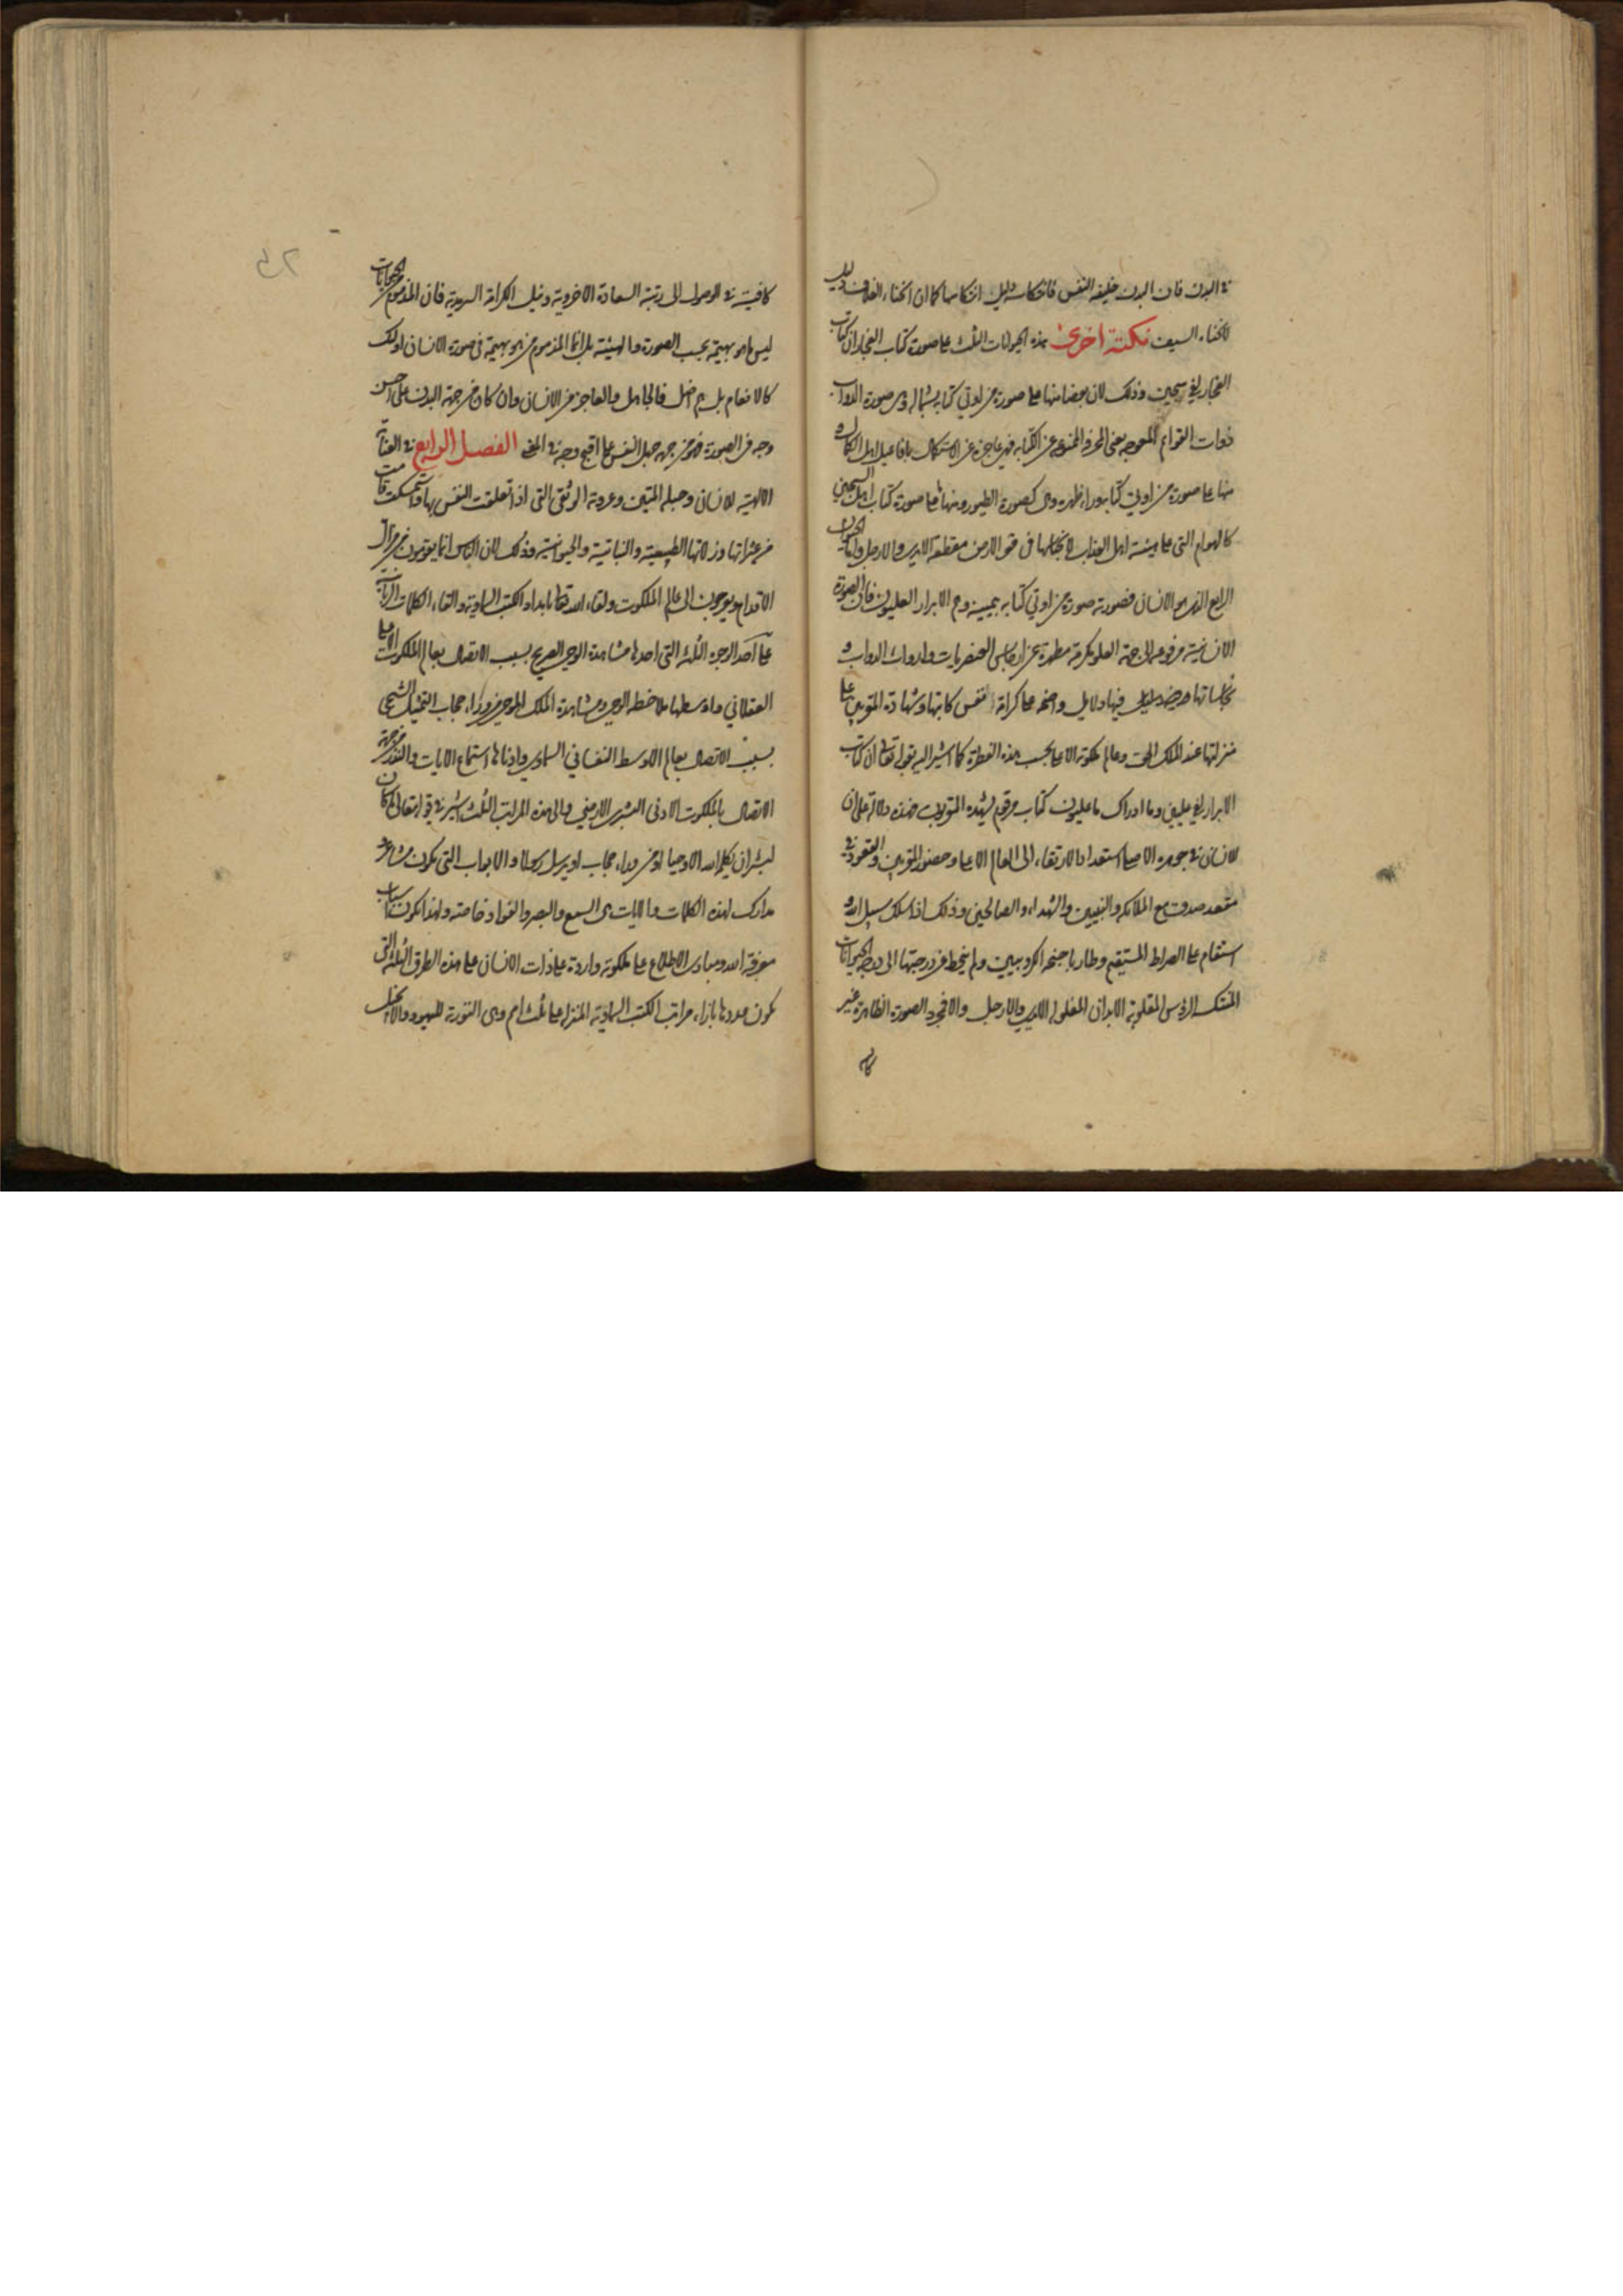 في البدن فان البدن خليفه النفس فانتكاسه دليل انتكاسها كما ان انحناء الغلاف دليل
لانحناء السيف نكتة اخرى هذه الحيوانات الثلث على صورة كتاب الفجار ان كتاب
الفجار لفي سجين وذلك لان بعضا منها على صورة من اوتي كتابه بشماله وهي صورة الدواب
ذوات القوائم المعوجه يعني المحرفة الممنوعه عن الكتابه فهي عاجزة عن الاستكمال بافاعيل اهل الكمال و
منها على صورة من اوتي كتابه وراء ظهره وهي كصورة الطيور ومنها ما على صورة كتاب اهل السجين
كالهوام التي على هيئة اهل العذاب في قعر الارض مقطعة الايدي والارجل واما الحيوان
الرابع الذي هو الانسان فصورته صورة من اوتي كتابه بيمينه وهم الابرار العليون فان الصورة
الانسانية مرفوعه الى جهة العلو مكرمة مطهرة عن ارجاس العنصريات وارواث الدواب و
نجاساتها فيها دلايل واضحه على كرامة نفس كاتبها وشهادة المقربين على
منزلتها عند الملك الحق وعالم ملكوته الاعلى بحسب هذه الفطرة كما اشير اليه بقوله تعالى ان كتاب
الابرار لفي عليين وما ادراك ما عليون كتاب مرقوم يشهده المقربون فهذه دلالة على ان
للانسان في جوهره الاصلي استعداد الارتقاء الى العالم الاعلى وحضور المقربين والقعود في
مقعد صدق مع الملائكة والنبيين والشهداء والصالحين وذلك اذا سلك سبيل الله و
استقام على الصراط المستقيم وطار باجنحة الكروبيين ولم ينحط عن درجتها الى درجة الحيوانات
المنتكسة الرؤس المقلوبة الابدان المغلولة الايدي والارجل والا فمجرد الصورة الظاهرة غير
كافية في الوصول الى رتبة السعادة الاخروية ونيل الكرامة السرمدية فان المذموم من الحيوانات
ليس ما هو بهيمة بحسب الصورة والهيئة بل انما المذموم من هو بهيمة في صورة الانسان اولئك
كالانعام بل هم اضل فالجاهل والعاجز من الانسان وان كان من جهة البدن على احسن
وجه في الصورة فهو من جهة جهل النفس على اقبح وجه في المعنى الفصل الرابع في العناية
الالهية للانسان وحبله المتين وعروته الوثقى التي اذا تعلقت النفس بها وتمسكت قامت
من عثراتها وزلاتها الطبيعية والنباتية والحيوانية وذلك لان الناس انما يقومون من مزال
الاقدام ويوجهون الى عالم الملكوت ولقاء الله تعالى بامداد الكتب السماوية والقاء الكلمات الربانية
على احد الوجوه الثلثة التي احدها مشاهدة الوحي الصريح بسبب الاتصال بعالم الملكوت الاعلى
العقلاني واوسطها ملاحظة الوحي ومشاهدة الملك الموحي من وراء حجاب التمثيل الشبحي
بسبب الاتصال بعالم الاوسط النفساني السماوي وادناها استماع الايات والنذر من جهة
الاتصال بالملكوت الادنى البشري الارضي والى هذه المراتب الثلث اشير في قوله تعالى ما كان
لبشر ان يكلمه الله الا وحيا او من وراء حجاب او يرسل رسولا والابواب التي تكون مشاعر و
مدارك لهذه الكلمات والايات هي السمع والبصر والفؤاد خاصة ولهذا يكون اسباب
معرفة الله ومبادي الاطلاع على ملكوته واردة على ذات الانسان على هذه الطرق الثلثة التي
يكون عددها بازاء مراتب الكتب السماوية المنزلة على ثلث امم وهي التورية لليهود والانجيل